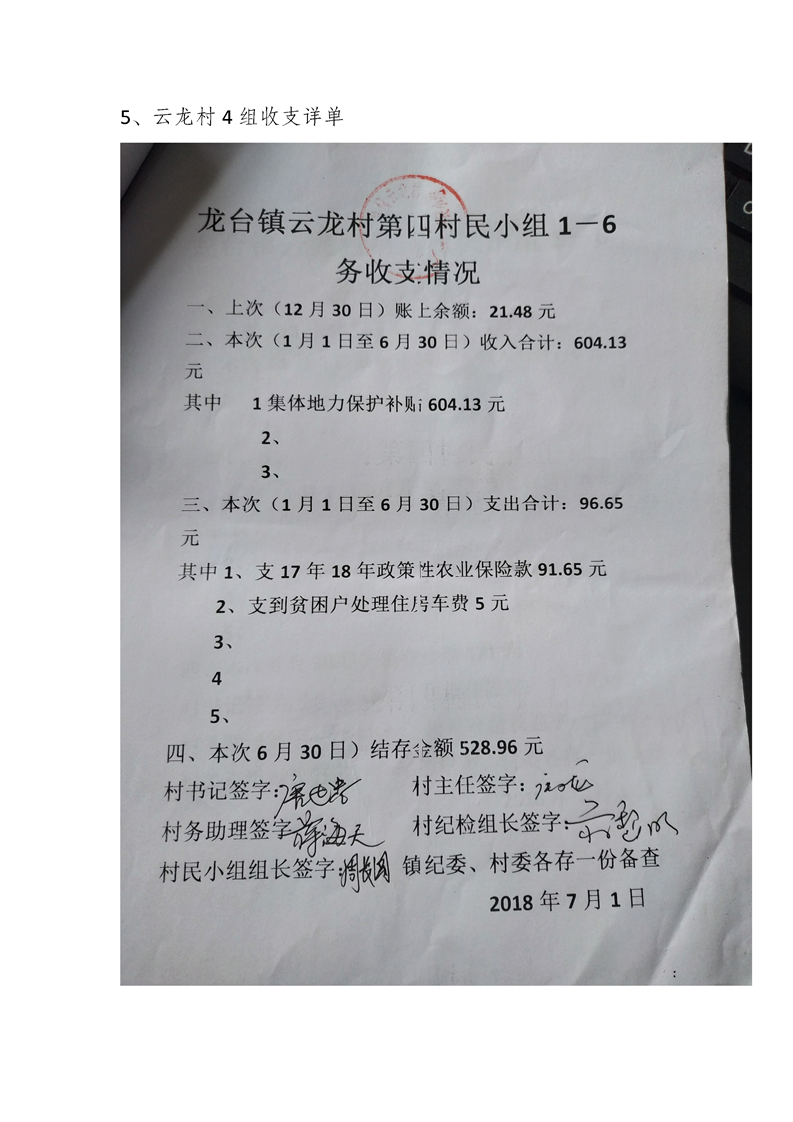 5、云龙村 4 组收支详单
龙台镇云龙村第四村民小组 1—6
务收支情况
一、上次（12 月 30 日）账上余额：21.48 元
二、本次（1 月 1 日至 6 月 30 日）收入合计：604.13
元
其中 1 集体地力保护补贴 604.13 元
2、
3、
三、本次（1 月 1 日至 6 月 30 日）支出合计：96.65
元
其中 1、支 17 年 18 年政策性农业保险款 91.65 元
2、支到贫困户处理住房车费 5 元
3、
4
5、
四、本次 6 月 30 日）结存金额 528.96 元
村书记签字: 村主任签字：
村务助理签字 村纪检组长签字:
村民小组组长签字: 镇纪委、村委各存一份备查
2018 年 7 月 1 日